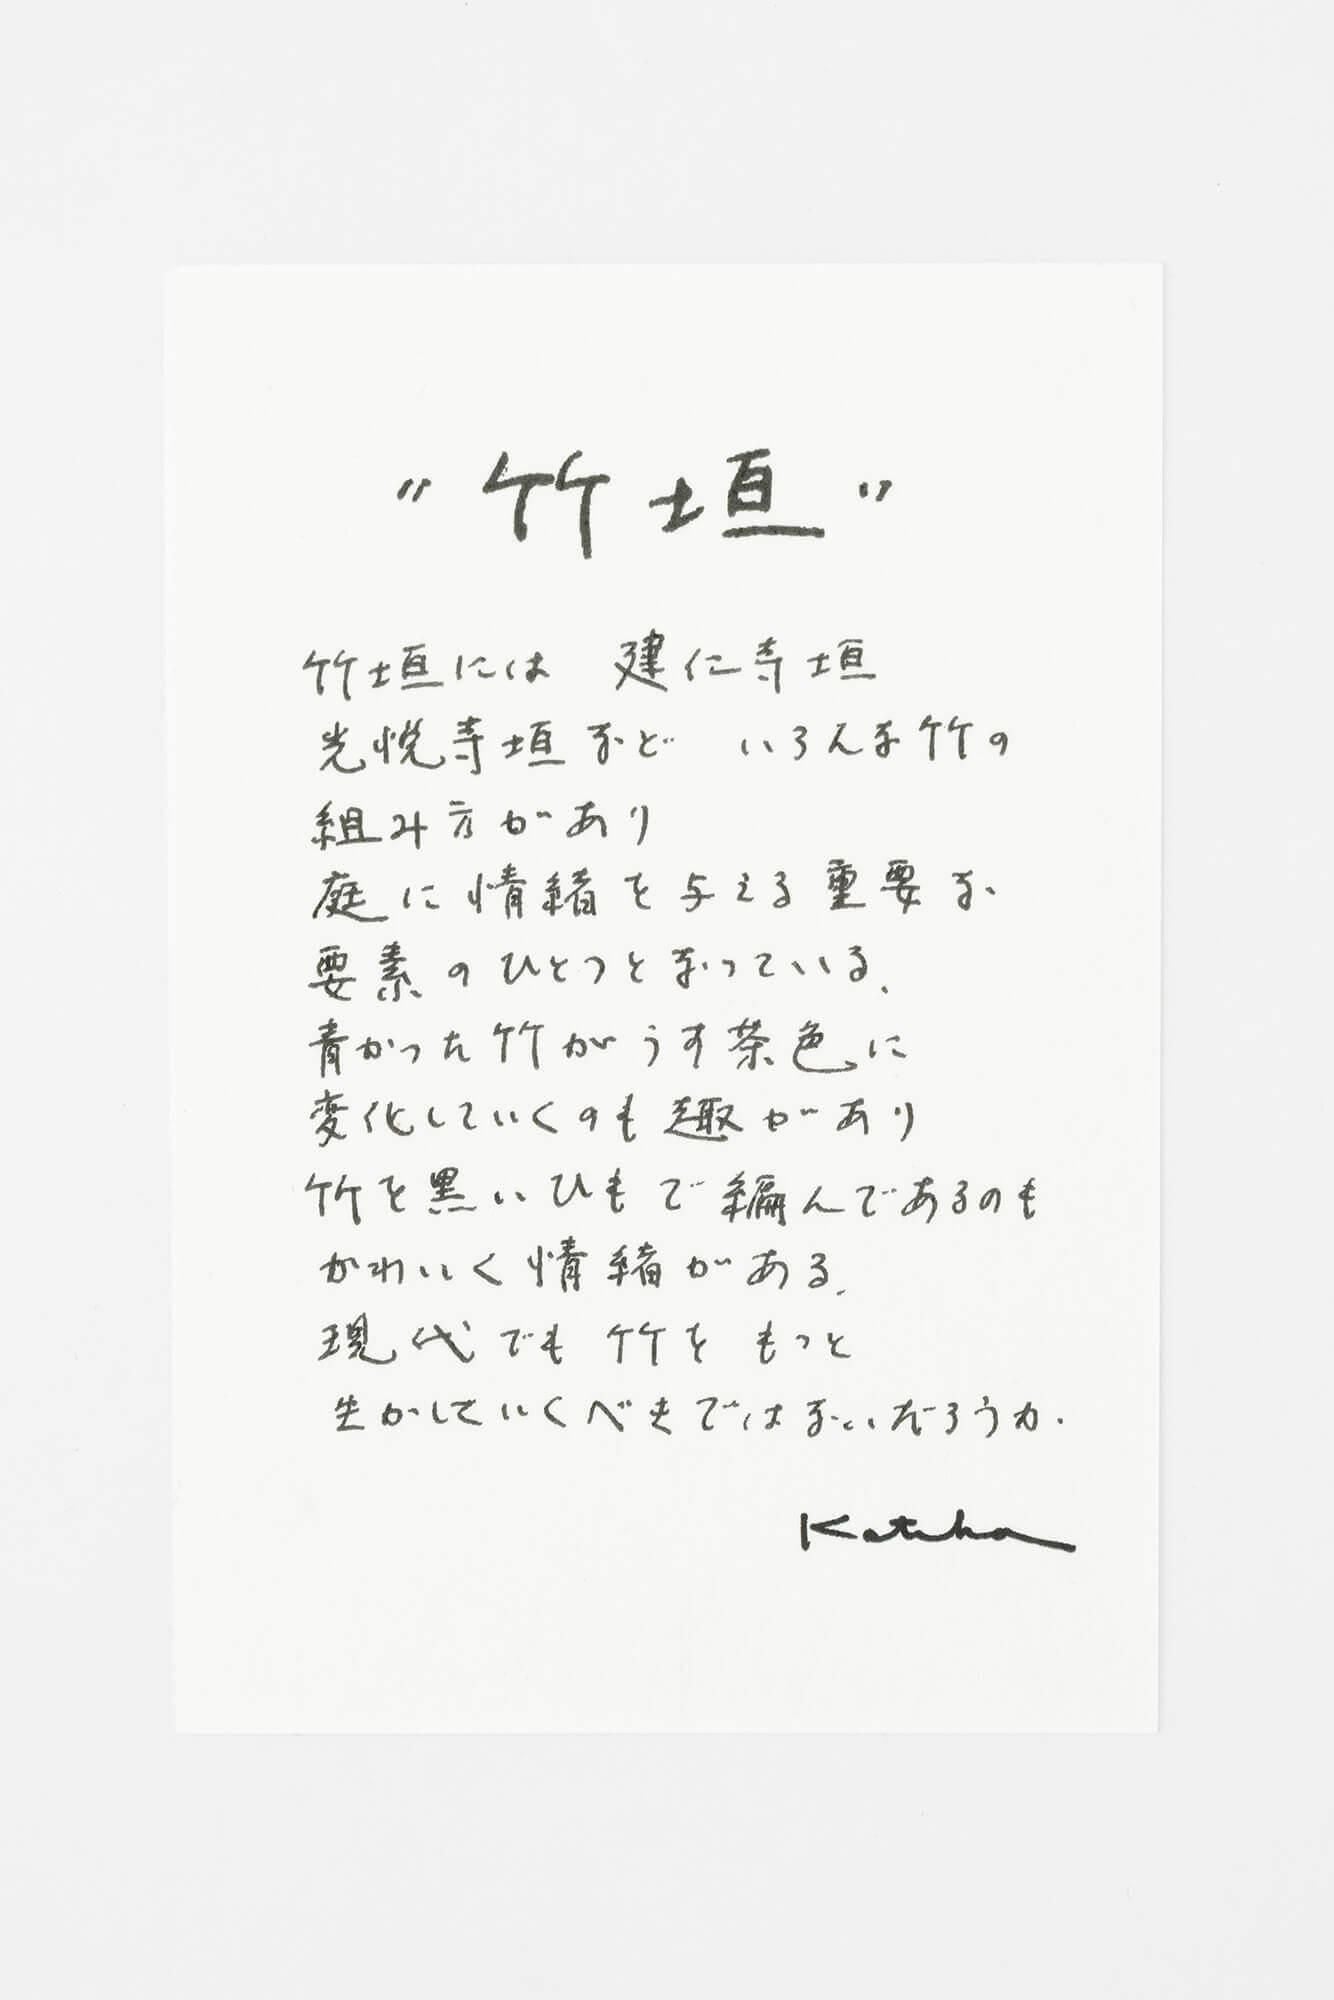 "竹垣"
竹垣には 建仁寺垣
光悦寺垣など いろんな竹の
組み方があり
庭に情緒を与える重要な
要素のひとつとなっている、
青かった竹がうす茶色に
変化していくのも趣があり
竹を黒いひもで編んであるのも
かわいく情緒がある、
現代でも竹を もっと
生かしていくべきではないだろうか.